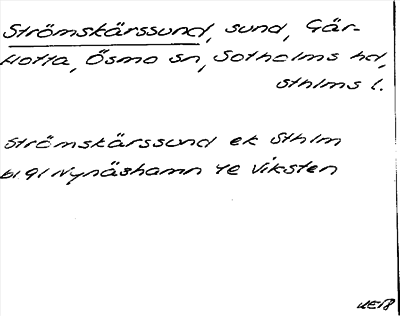 Strömskärssund, sund, Går-
Hotta, Ösmo sn, Sotholms hd,
sthlms l.
Strömskärssund ek Sthlm
bl 91 Nynäshamn 4e Viksten